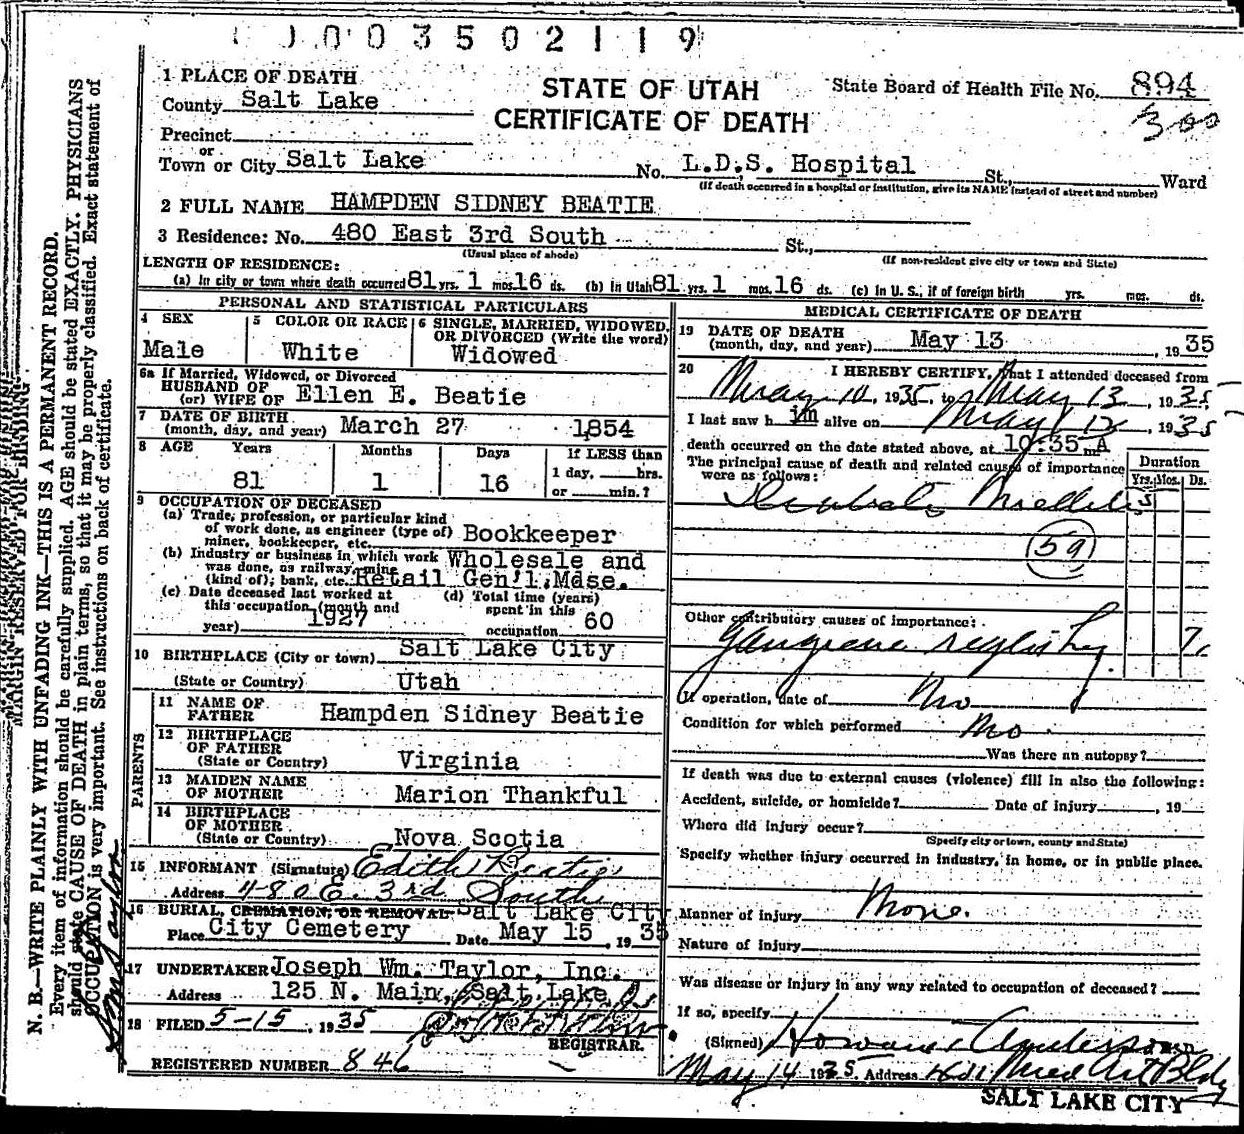 0003502119
1 PLACE OF DEATH
County Salt Lake
Precinct
or
Town or City Salt Lake
STATE OF UTAH
CERTIFICATE OF DEATH
State Board of Health File No. 894
300
No. L.D.S. Hospital St., Ward
(If death occurred in a hospital or institution, give its NAME instead of street and number)
2 FULL NAME HAMPDEN SIDNEY BEATIE
3 Residence: No. 480 East 3rd South St.,
(Usual place of abode)
(If non-resident give city or town and State)
LENGTH OF RESIDENCE:
(a) In city or town where death occurred 81 yrs. 1 mos. 16 ds. (b) in Utah 81 yrs. 1 mos. 16 ds. (c) in U. S., if of foreign birth yrs. mos. ds.
PERSONAL AND STATISTICAL PARTICULARS
4 SEX
Male
5 COLOR OR RACE
White
6 SINGLE, MARRIED, WIDOWED, OR DIVORCED (Write the word)
Widowed
6a If Married, Widowed, or Divorced
HUSBAND OF
(or) WIFE OF Ellen E. Beatie
7 DATE OF BIRTH
(month, day, and year) March 27 1854
8 AGE Years Months Days If LESS than
81 1 16 1 day, hrs.
or min.?
9 OCCUPATION OF DECEASED
(a) Trade, profession, or particular kind
of work done, as engineer (type of)
miner, bookkeeper, etc. Bookkeeper
(b) Industry or business in which work
was done, as railway, mine
(kind of); bank, etc. Wholesale and
Retail Gen'l.Mdse.
(c) Date deceased last worked at
this occupation (month and
year) 1927
(d) Total time (years)
spent in this
occupation 60
10 BIRTHPLACE (City or town) Salt Lake City
(State or Country) Utah
PARENTS
11 NAME OF
FATHER Hampden Sidney Beatie
12 BIRTHPLACE
OF FATHER
(State or Country) Virginia
13 MAIDEN NAME
OF MOTHER Marion Thankful
14 BIRTHPLACE
OF MOTHER
(State or Country) Nova Scotia
15 INFORMANT (Signature) Edith Beatie
Address 480 E. 3rd South
16 BURIAL, CREMATION, OR REMOVAL Salt Lake City
Place City Cemetery Date May 15, 1935
17 UNDERTAKER Joseph Wm. Taylor, Inc.
Address 125 N. Main, Salt Lake
18 FILED 5-15, 1935
REGISTRAR.
REGISTERED NUMBER 846
MEDICAL CERTIFICATE OF DEATH
19 DATE OF DEATH
(month, day, and year) May 13, 1935
20 I HEREBY CERTIFY, that I attended deceased from
May 10, 1935, to May 13, 1935
I last saw him alive on May 13, 1935
death occurred on the date stated above, at 10:35 A m.
The principal cause of death and related causes of importance
were as follows:
Duration
Yrs. Mos. Ds.
59
Other contributory causes of importance:
Gangrene
7
If operation, date of No
Condition for which performed No
Was there an autopsy?
If death was due to external causes (violence) fill in also the following:
Accident, suicide, or homicide? Date of injury, 19
Where did injury occur?
(Specify city or town, county and State)
Specify whether injury occurred in industry, in home, or in public place.
Manner of injury None.
Nature of injury
Was disease or injury in any way related to occupation of deceased?
If so, specify
(Signed) Howard Anderson M.D.
May 14 1935. Address Med Art Bldg
SALT LAKE CITY
MARGIN RESERVED FOR BINDING
N. B.—WRITE PLAINLY WITH UNFADING INK—THIS IS A PERMANENT RECORD.
Every item of information should be carefully supplied. AGE should be stated EXACTLY. PHYSICIANS
should state CAUSE OF DEATH in plain terms, so that it may be properly classified. Exact statement of
OCCUPATION is very important. See instructions on back of certificate.